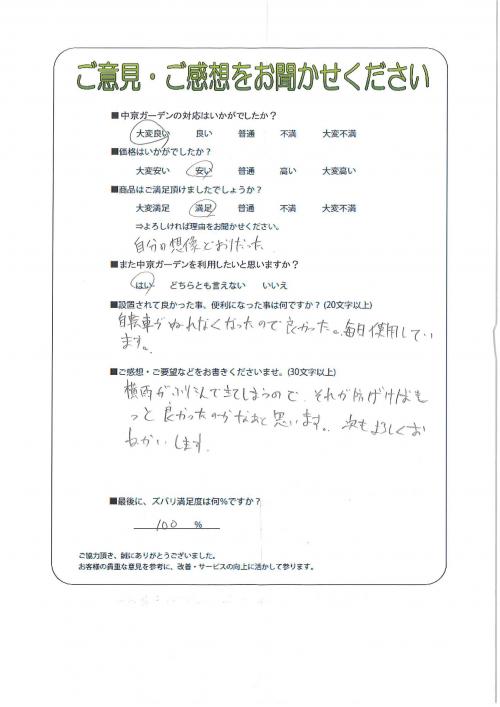 ご意見・ご感想をお聞かせください
■中京ガーデンの対応はいかがでしたか？
大変良い 良い 普通 不満 大変不満
■価格はいかがでしたか？
大変安い 安い 普通 高い 大変高い
■商品はご満足頂けましたでしょうか？
大変満足 満足 普通 不満 大変不満
⇒よろしければ理由をお聞かせください。
自分の想像どおりだった
■また中京ガーデンを利用したいと思いますか？
はい どちらとも言えない いいえ
■設置されて良かった事、便利になった事は何ですか？(20文字以上)
自転車がぬれなくなったので良かった。毎日使用してい
ます。
■ご感想・ご要望などをお書きくださいませ。(30文字以上)
横雨がふりこんで きてしまうので、それが防げればも
っと良かったのかなあと思います。次もよろしくお
ねがいします。
■最後に、ズバリ満足度は何%ですか？
100 %
ご協力頂き、誠にありがとうございました。
お客様の貴重な意見を参考に、改善・サービスの向上に活かして参ります。